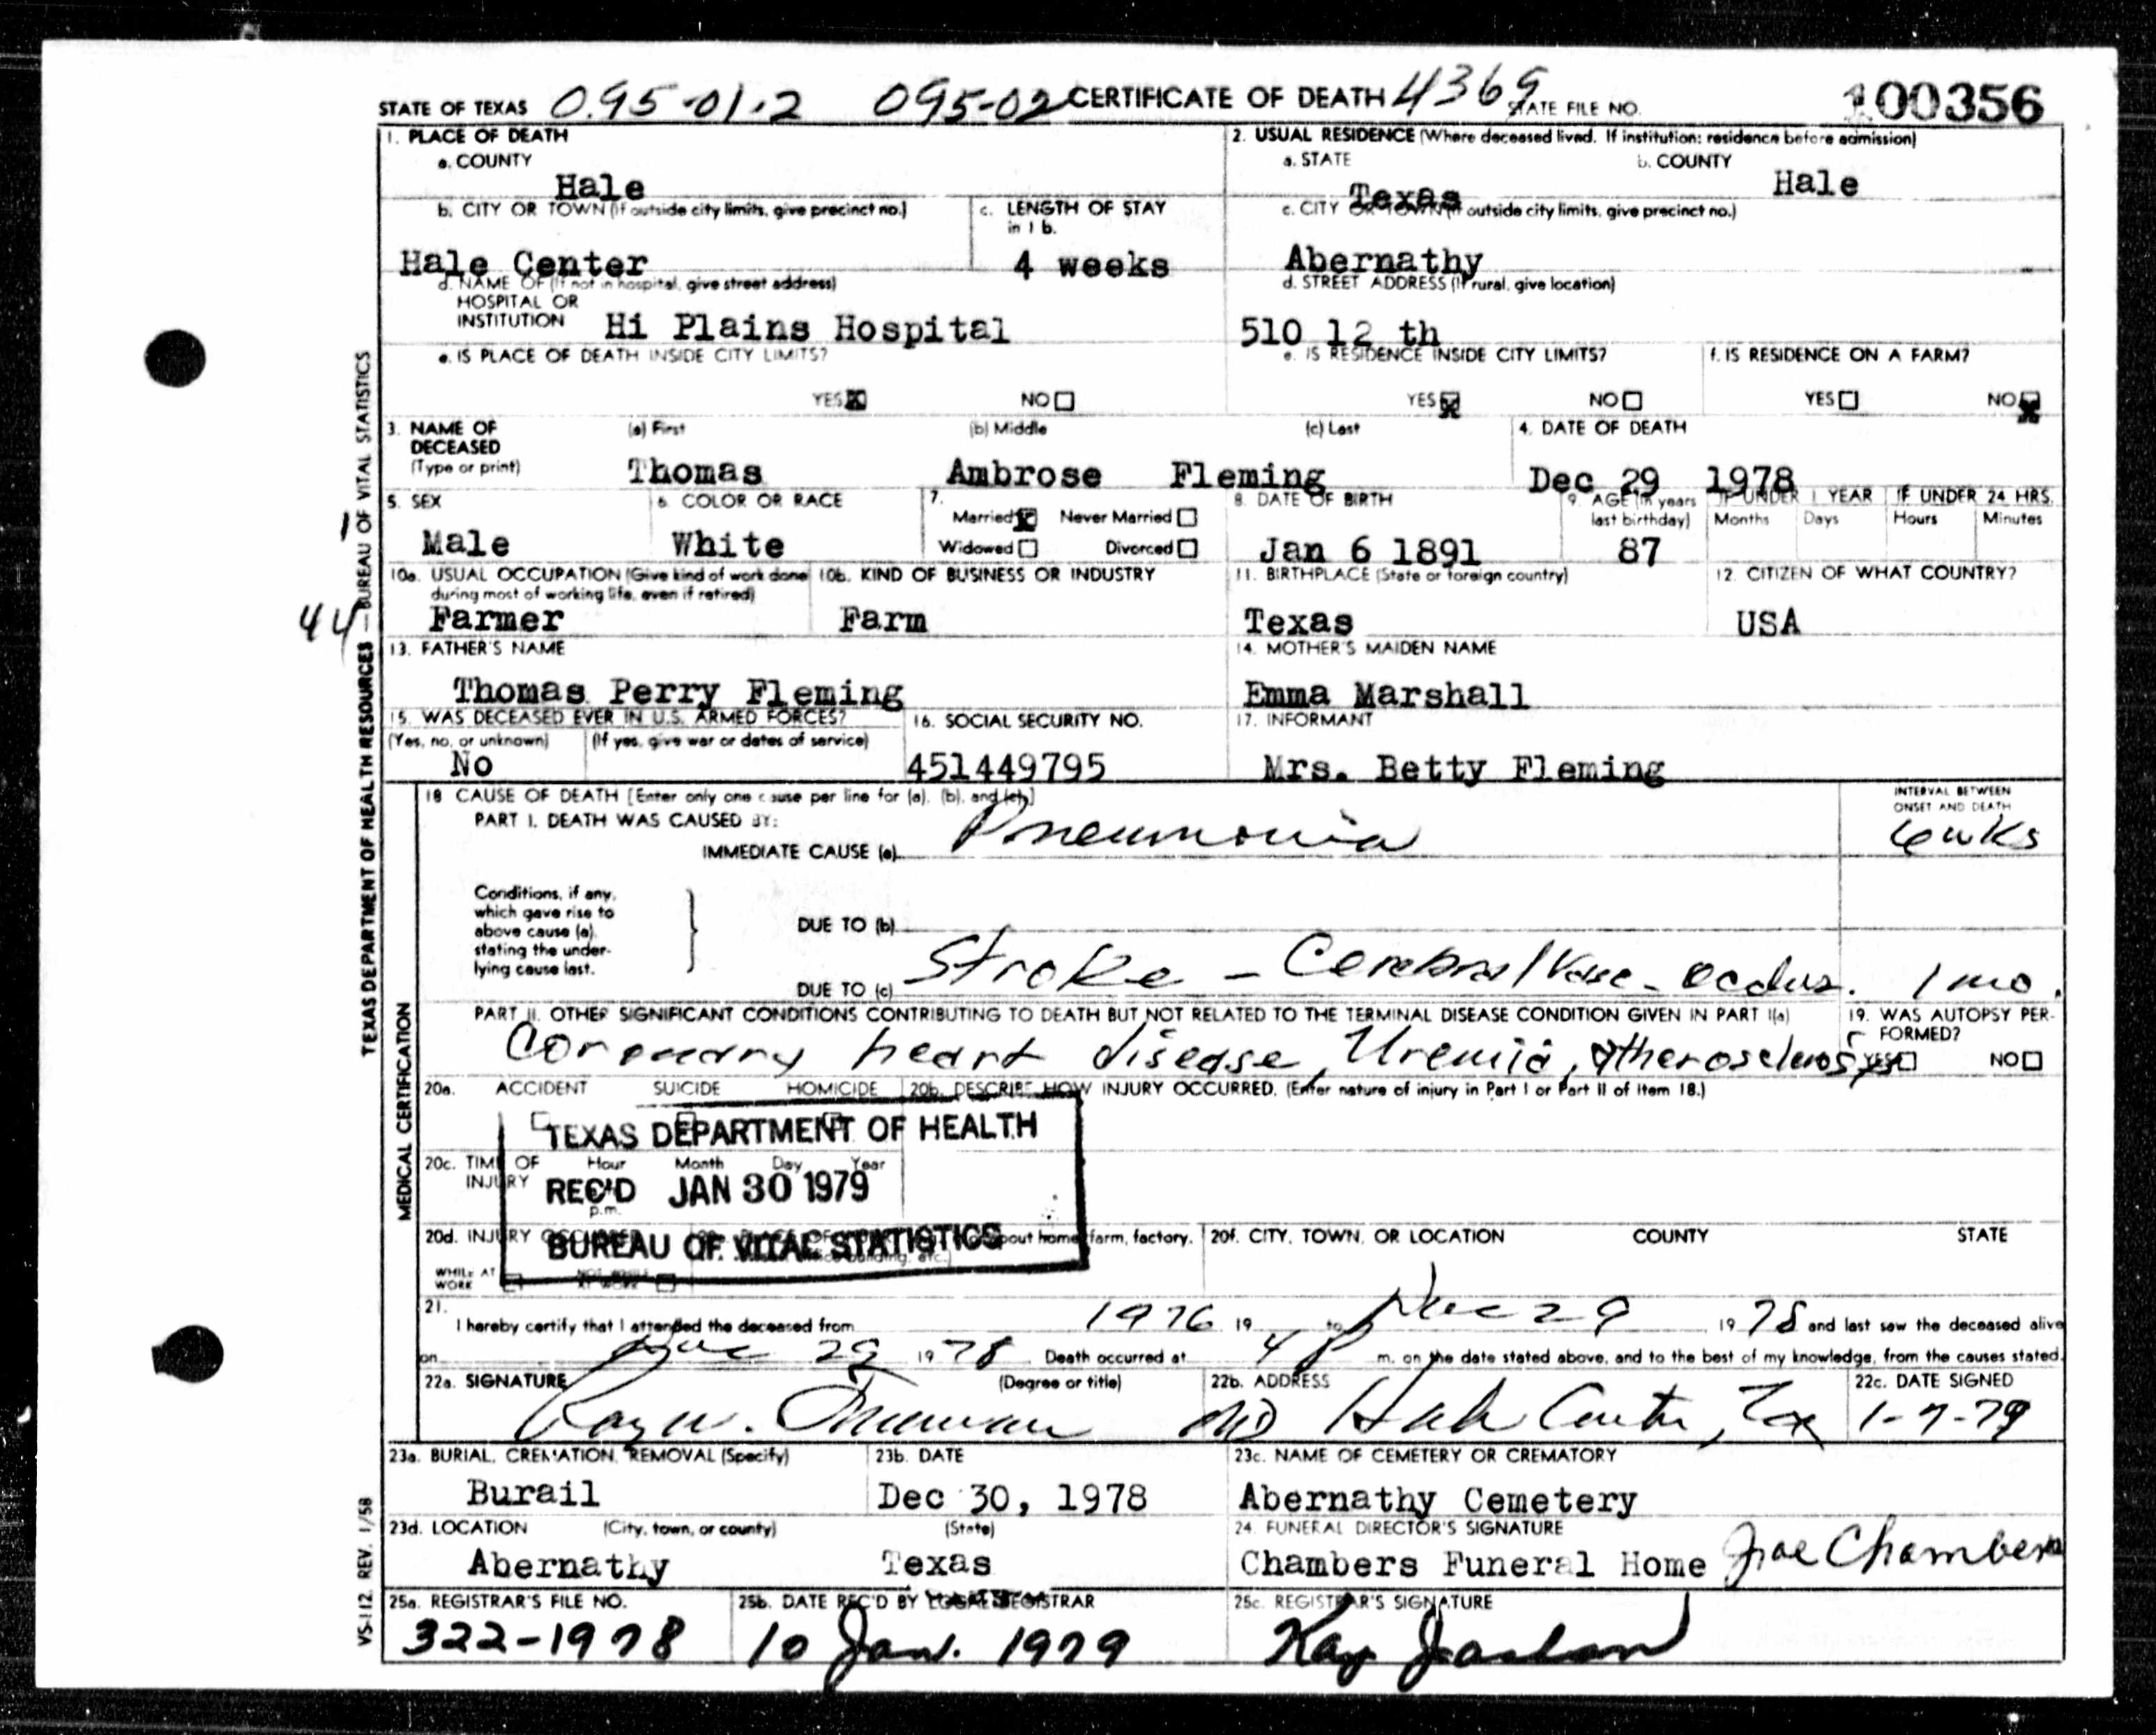 STATE OF TEXAS 095-01-2 095-02 CERTIFICATE OF DEATH 4369 STATE FILE NO. 100356
1. PLACE OF DEATH
a. COUNTY
Hale
2. USUAL RESIDENCE (Where deceased lived. If institution: residence before admission)
a. STATE b. COUNTY
Texas Hale
b. CITY OR TOWN (If outside city limits, give precinct no.)
Hale Center
c. LENGTH OF STAY
in 1 b.
4 weeks
c. CITY OR TOWN (If outside city limits, give precinct no.)
Abernathy
d. NAME OF (If not in hospital, give street address)
HOSPITAL OR
INSTITUTION Hi Plains Hospital
d. STREET ADDRESS (If rural, give location)
510 12 th
e. IS PLACE OF DEATH INSIDE CITY LIMITS?
YES NO
e. IS RESIDENCE INSIDE CITY LIMITS?
YES NO
f. IS RESIDENCE ON A FARM?
YES NO
3. NAME OF
DECEASED
(Type or print)
(a) First (b) Middle (c) Last
Thomas Ambrose Fleming
4. DATE OF DEATH
Dec 29 1978
5. SEX
Male
6. COLOR OR RACE
White
7.
Married Never Married
Widowed Divorced
8. DATE OF BIRTH
Jan 6 1891
9. AGE (In years
last birthday)
87
IF UNDER 1 YEAR IF UNDER 24 HRS.
Months Days Hours Minutes
10a. USUAL OCCUPATION (Give kind of work done
during most of working life, even if retired)
Farmer
10b. KIND OF BUSINESS OR INDUSTRY
Farm
11. BIRTHPLACE (State or foreign country)
Texas
12. CITIZEN OF WHAT COUNTRY?
USA
13. FATHER'S NAME
Thomas Perry Fleming
14. MOTHER'S MAIDEN NAME
Emma Marshall
15. WAS DECEASED EVER IN U.S. ARMED FORCES?
(Yes, no, or unknown) (If yes, give war or dates of service)
No
16. SOCIAL SECURITY NO.
451449795
17. INFORMANT
Mrs. Betty Fleming
18 CAUSE OF DEATH [Enter only one cause per line for (a), (b), and (c).]
PART I. DEATH WAS CAUSED BY:
IMMEDIATE CAUSE (a) Pneumonia
INTERVAL BETWEEN
ONSET AND DEATH
6 wks
Conditions, if any,
which gave rise to
above cause (a),
stating the under-
lying cause last.
DUE TO (b)
DUE TO (c) Stroke - Cerebral Vasc. occlus. 1 mo.
PART II. OTHER SIGNIFICANT CONDITIONS CONTRIBUTING TO DEATH BUT NOT RELATED TO THE TERMINAL DISEASE CONDITION GIVEN IN PART I(a)
Coronary heart disease, Uremia, atherosclerosis
19. WAS AUTOPSY PER-
FORMED?
YES NO
20a. ACCIDENT SUICIDE HOMICIDE
20b. DESCRIBE HOW INJURY OCCURRED. (Enter nature of injury in Part I or Part II of Item 18.)
20c. TIME OF
INJURY
Hour Month Day Year
p.m.
TEXAS DEPARTMENT OF HEALTH
REC'D JAN 30 1979
BUREAU OF VITAL STATISTICS
20d. INJURY
WHILE AT
WORK
NOT WHILE
AT WORK
about home, farm, factory,
building, etc.)
20f. CITY, TOWN, OR LOCATION COUNTY STATE
21.
I hereby certify that I attended the deceased from 1976 19 to Dec 29 1978 and last saw the deceased alive
on Dec 29 1978. Death occurred at 4 P m. on the date stated above, and to the best of my knowledge, from the causes stated.
22a. SIGNATURE (Degree or title)
Ray W. MD
22b. ADDRESS
Hale Center, Tex
22c. DATE SIGNED
1-7-79
23a. BURIAL, CREMATION, REMOVAL (Specify)
Burail
23b. DATE
Dec 30, 1978
23c. NAME OF CEMETERY OR CREMATORY
Abernathy Cemetery
23d. LOCATION (City, town, or county) (State)
Abernathy Texas
24. FUNERAL DIRECTOR'S SIGNATURE
Chambers Funeral Home Joe Chambers
25a. REGISTRAR'S FILE NO.
322-1978
25b. DATE REC'D BY LOCAL REGISTRAR
10 Jan. 1979
25c. REGISTRAR'S SIGNATURE
Kay
TEXAS DEPARTMENT OF HEALTH RESOURCES — BUREAU OF VITAL STATISTICS
1
44
MEDICAL CERTIFICATION
VS-112 REV. 1/58